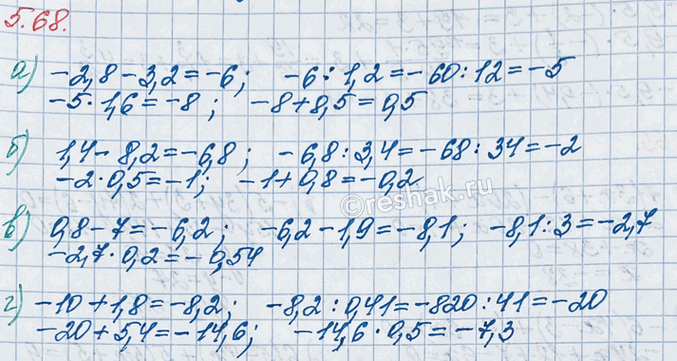 5.68.
а) -2,8-3,2=-6; -6:1,2=-60:12=-5
-5·1,6=-8; -8+8,5=0,5
б) 1,4-8,2=-6,8; -6,8:3,4=-68:34=-2
-2·0,5=-1; -1+0,8=-0,2
©reshak.ru
в) 0,8-7=-6,2; -6,2-1,9=-8,1; -8,1:3=-2,7
-2,7·0,2=-0,54
г) -10+1,8=-8,2; -8,2:0,41=-820:41=-20
-20+5,4=-14,6; -14,6·0,5=-7,3